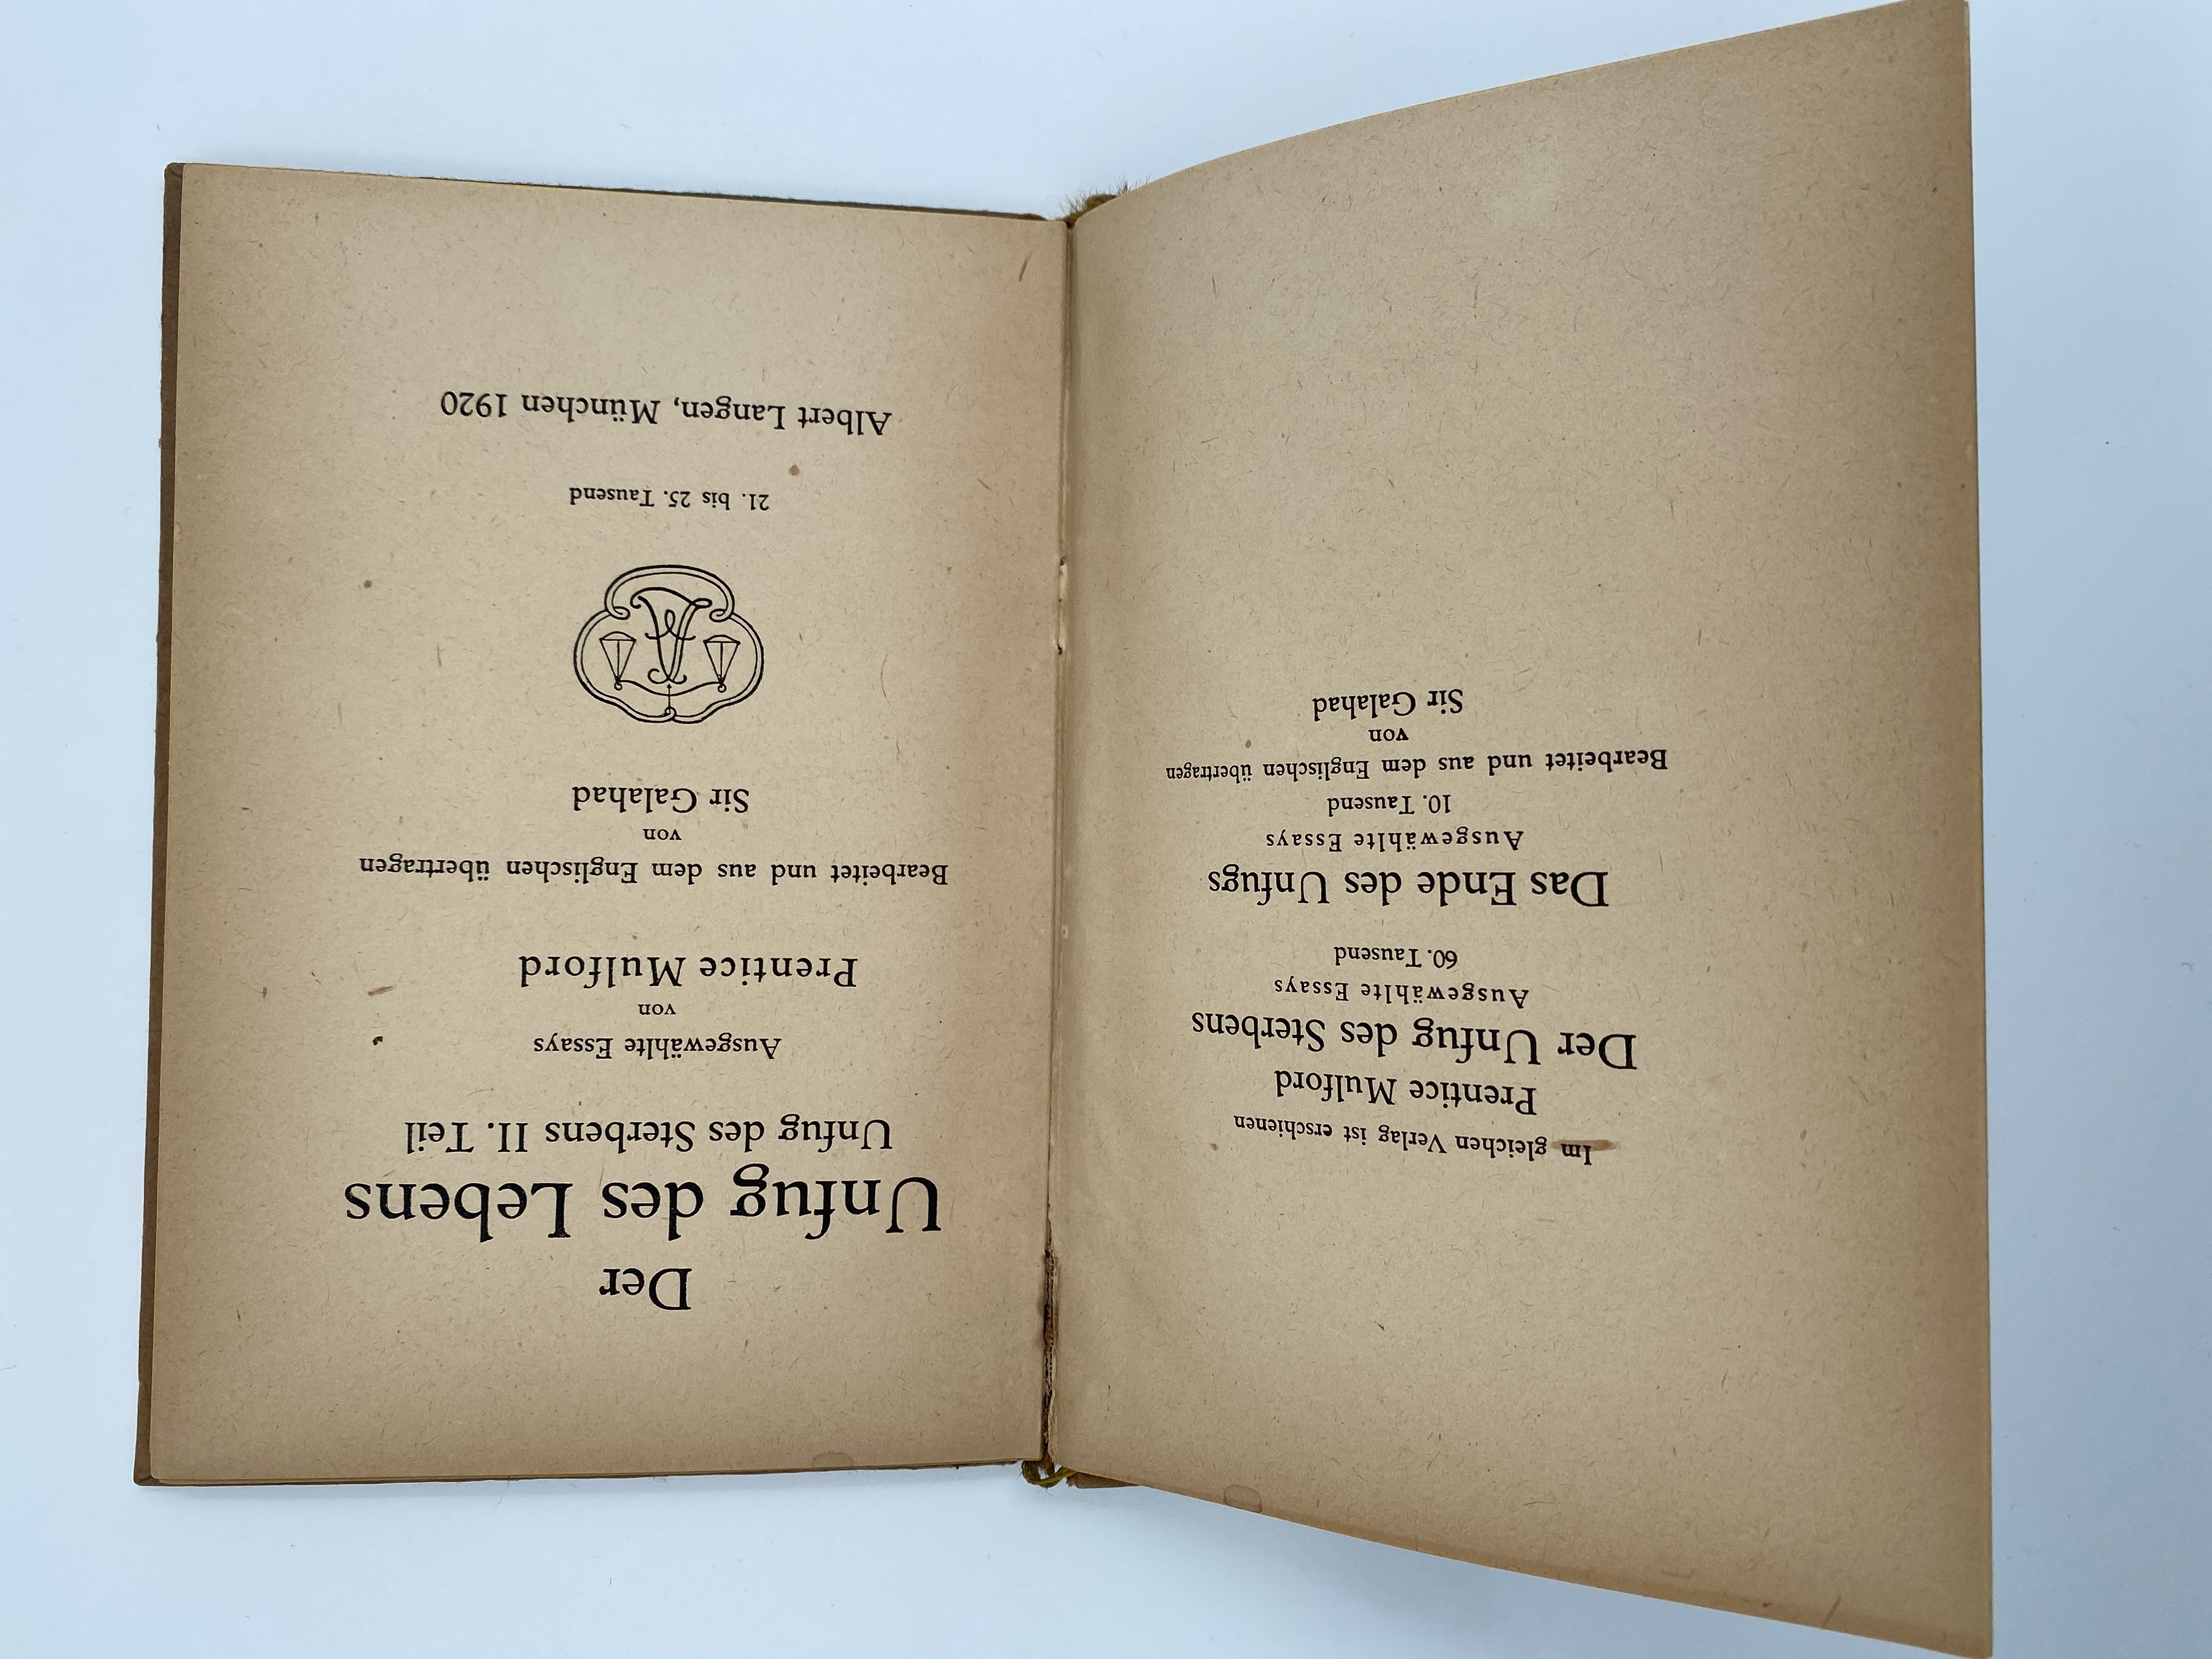 Im gleichen Verlag ist erschienen
Prentice Mulford
Der Unfug des Sterbens
Ausgewählte Essays
60. Tausend
Das Ende des Unfugs
Ausgewählte Essays
10. Tausend
Bearbeitet und aus dem Englischen übertragen
von
Sir Galahad
Der
Unfug des Lebens
Unfug des Sterbens II. Teil
Ausgewählte Essays
von
Prentice Mulford
Bearbeitet und aus dem Englischen übertragen
von
Sir Galahad
21. bis 25. Tausend
Albert Langen, München 1920